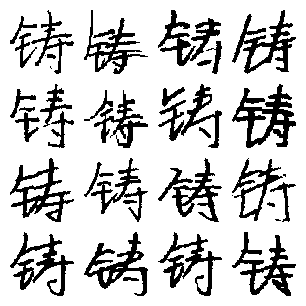 铸铸铸铸
铸铸铸铸
铸铸铸铸
铸铸铸铸